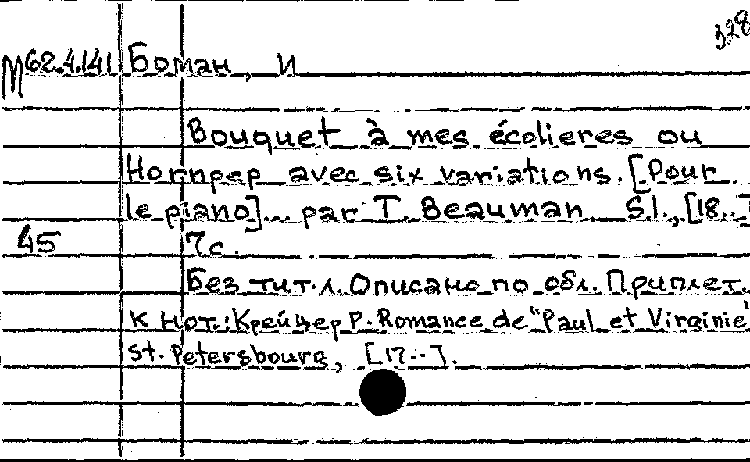 328
М62.4.141 Боман, И
Bouquet à mes écolieres ou
Hornpep avec six variations. [Pour
le piano]... par T. Beauman S.l., [18..]
45 7с.
Без тит.л. Описано по обл. Приплет.
к нот.: Крейцер Р. Romance de "Paul et Virginie"
St. Petersbourg, [17--].